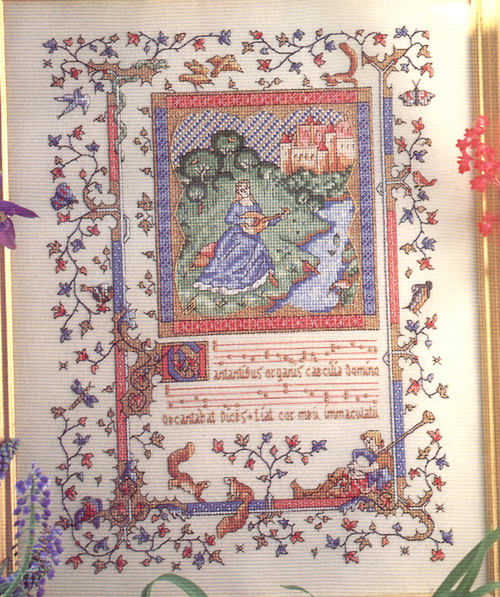 Cantantibus organis caecilia Domino
Decantabat Dices · Fiat cor meu immaculatu